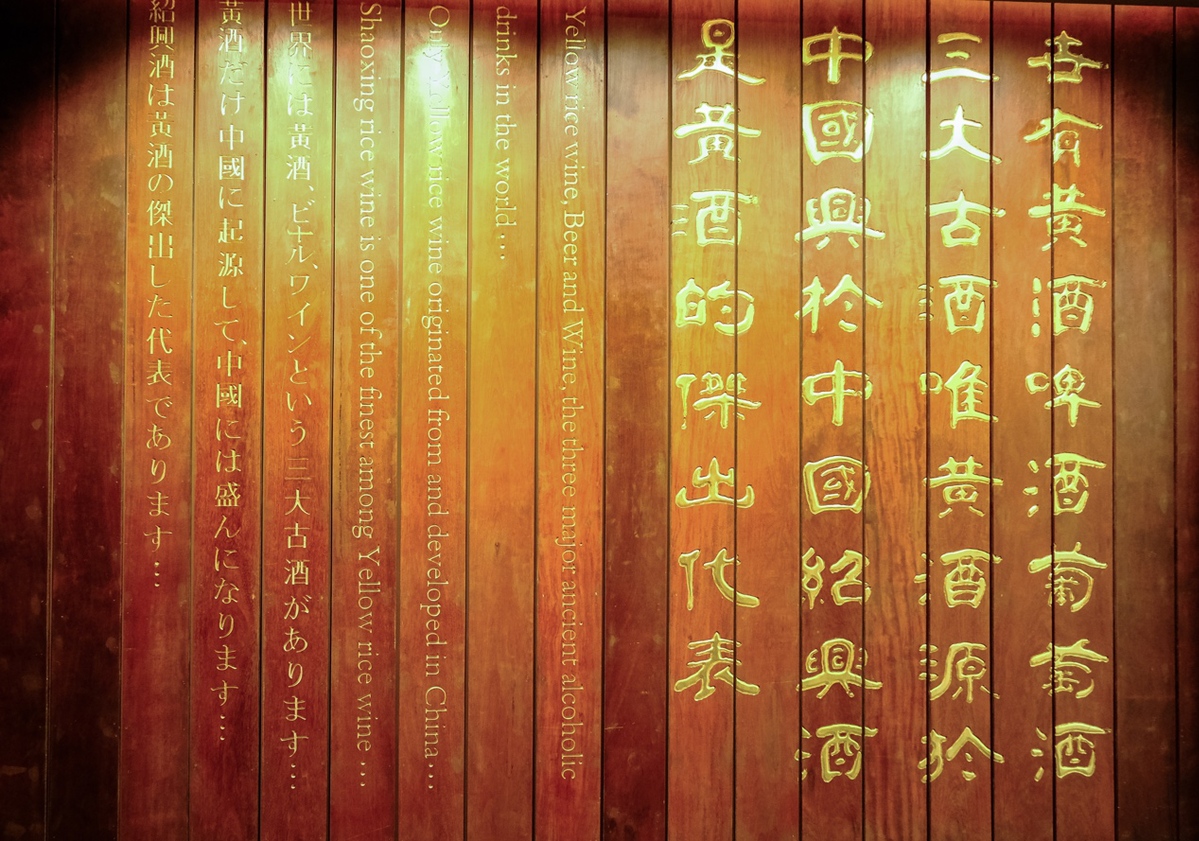 世有黃酒啤酒葡萄酒
三大古酒唯黃酒源於
中國興於中國紹興酒
是黃酒的傑出代表
Yellow rice wine, Beer and Wine, the three major ancient alcoholic
drinks in the world…
Only Yellow rice wine originated from and developed in China…
Shaoxing rice wine is one of the finest among Yellow rice wine …
世界には黃酒、ビール、ワインという三大古酒があります…
黃酒だけ中國に起源して、中國には盛んになります…
紹興酒は黃酒の傑出した代表であります…